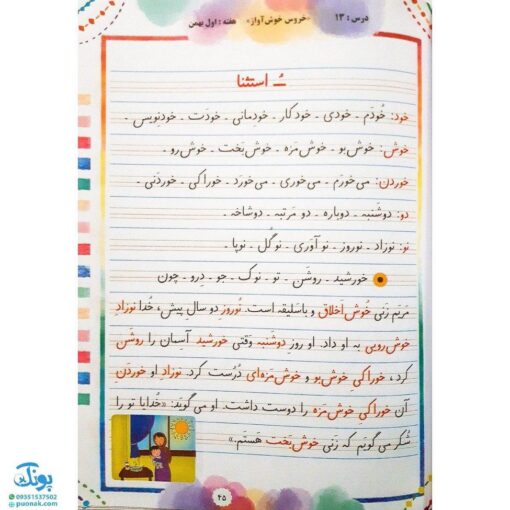 درس : ۱۳ «خروس خوش آواز» هفته : اول بهمن
ـُـ استثنا
خود: خُودَم - خودی - خودکار - خودمانی - خودَت - خودنِویس -
خوش: خوش‌بو - خوش‌مَزه - خوش‌بَخت - خوش‌رو -
خوردن: می‌خورَم - می‌خوری - می‌خورَد - خوراکی - خوردَنی -
دو: دوشَنبه - دوباره - دو مَرتبه - دوشاخه -
نو: نوزاد - نوروز - نوآوَری - نوگُل - نوپا -
خورشید - روشَن - تو - نوک - جو - دِرو - چون
مَریَم زَنی خُوش‌اَخلاق و باسَلیقه است. نُوروزِ دو سال پیش، خُدا نوزادِ
خوش‌رویی به او داد. او روزِ دوشَنبه وَقتی خورشید آسِمان را روشَن
کرد، خوراکیِ خوش‌بو و خوش‌مَزه‌ای دُرُست کرد. نوزادِ او خوردَنِ
آن خوراکیِ خوش‌مَزه را دوست داشت. او می‌گویَد: «خُدایا تو را
شُکر می‌گویم که زَنی خوش‌بَخت هَستَم.»
۴۵
پونک
09351537502
puonak.com